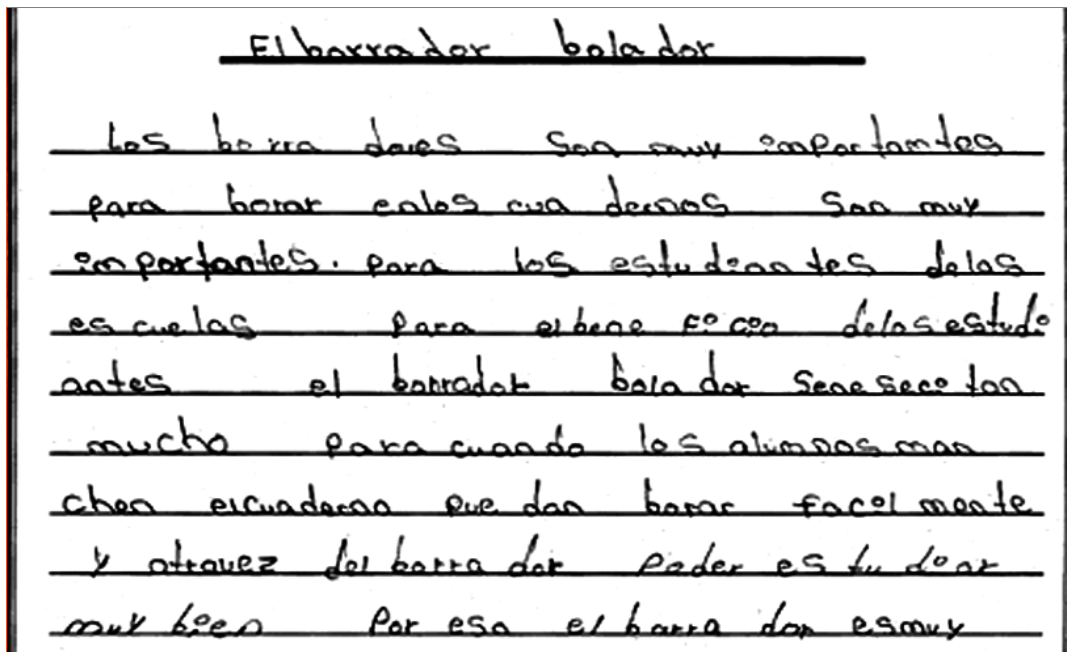 El borra dor bola dor
Los borra dores son muy importantes
para borar enlos cua dernos son muy
importantes. para los estudian tes delas
es cuelas para elbene ficio delos estudi
antes el borrador bola dor sene seci tan
mucho para cuando los alumnos man
chen elcuaderno pue dan borar facil mente
y atravez del borra dor poder es tu diar
muy bien por eso el borra dor esmuy